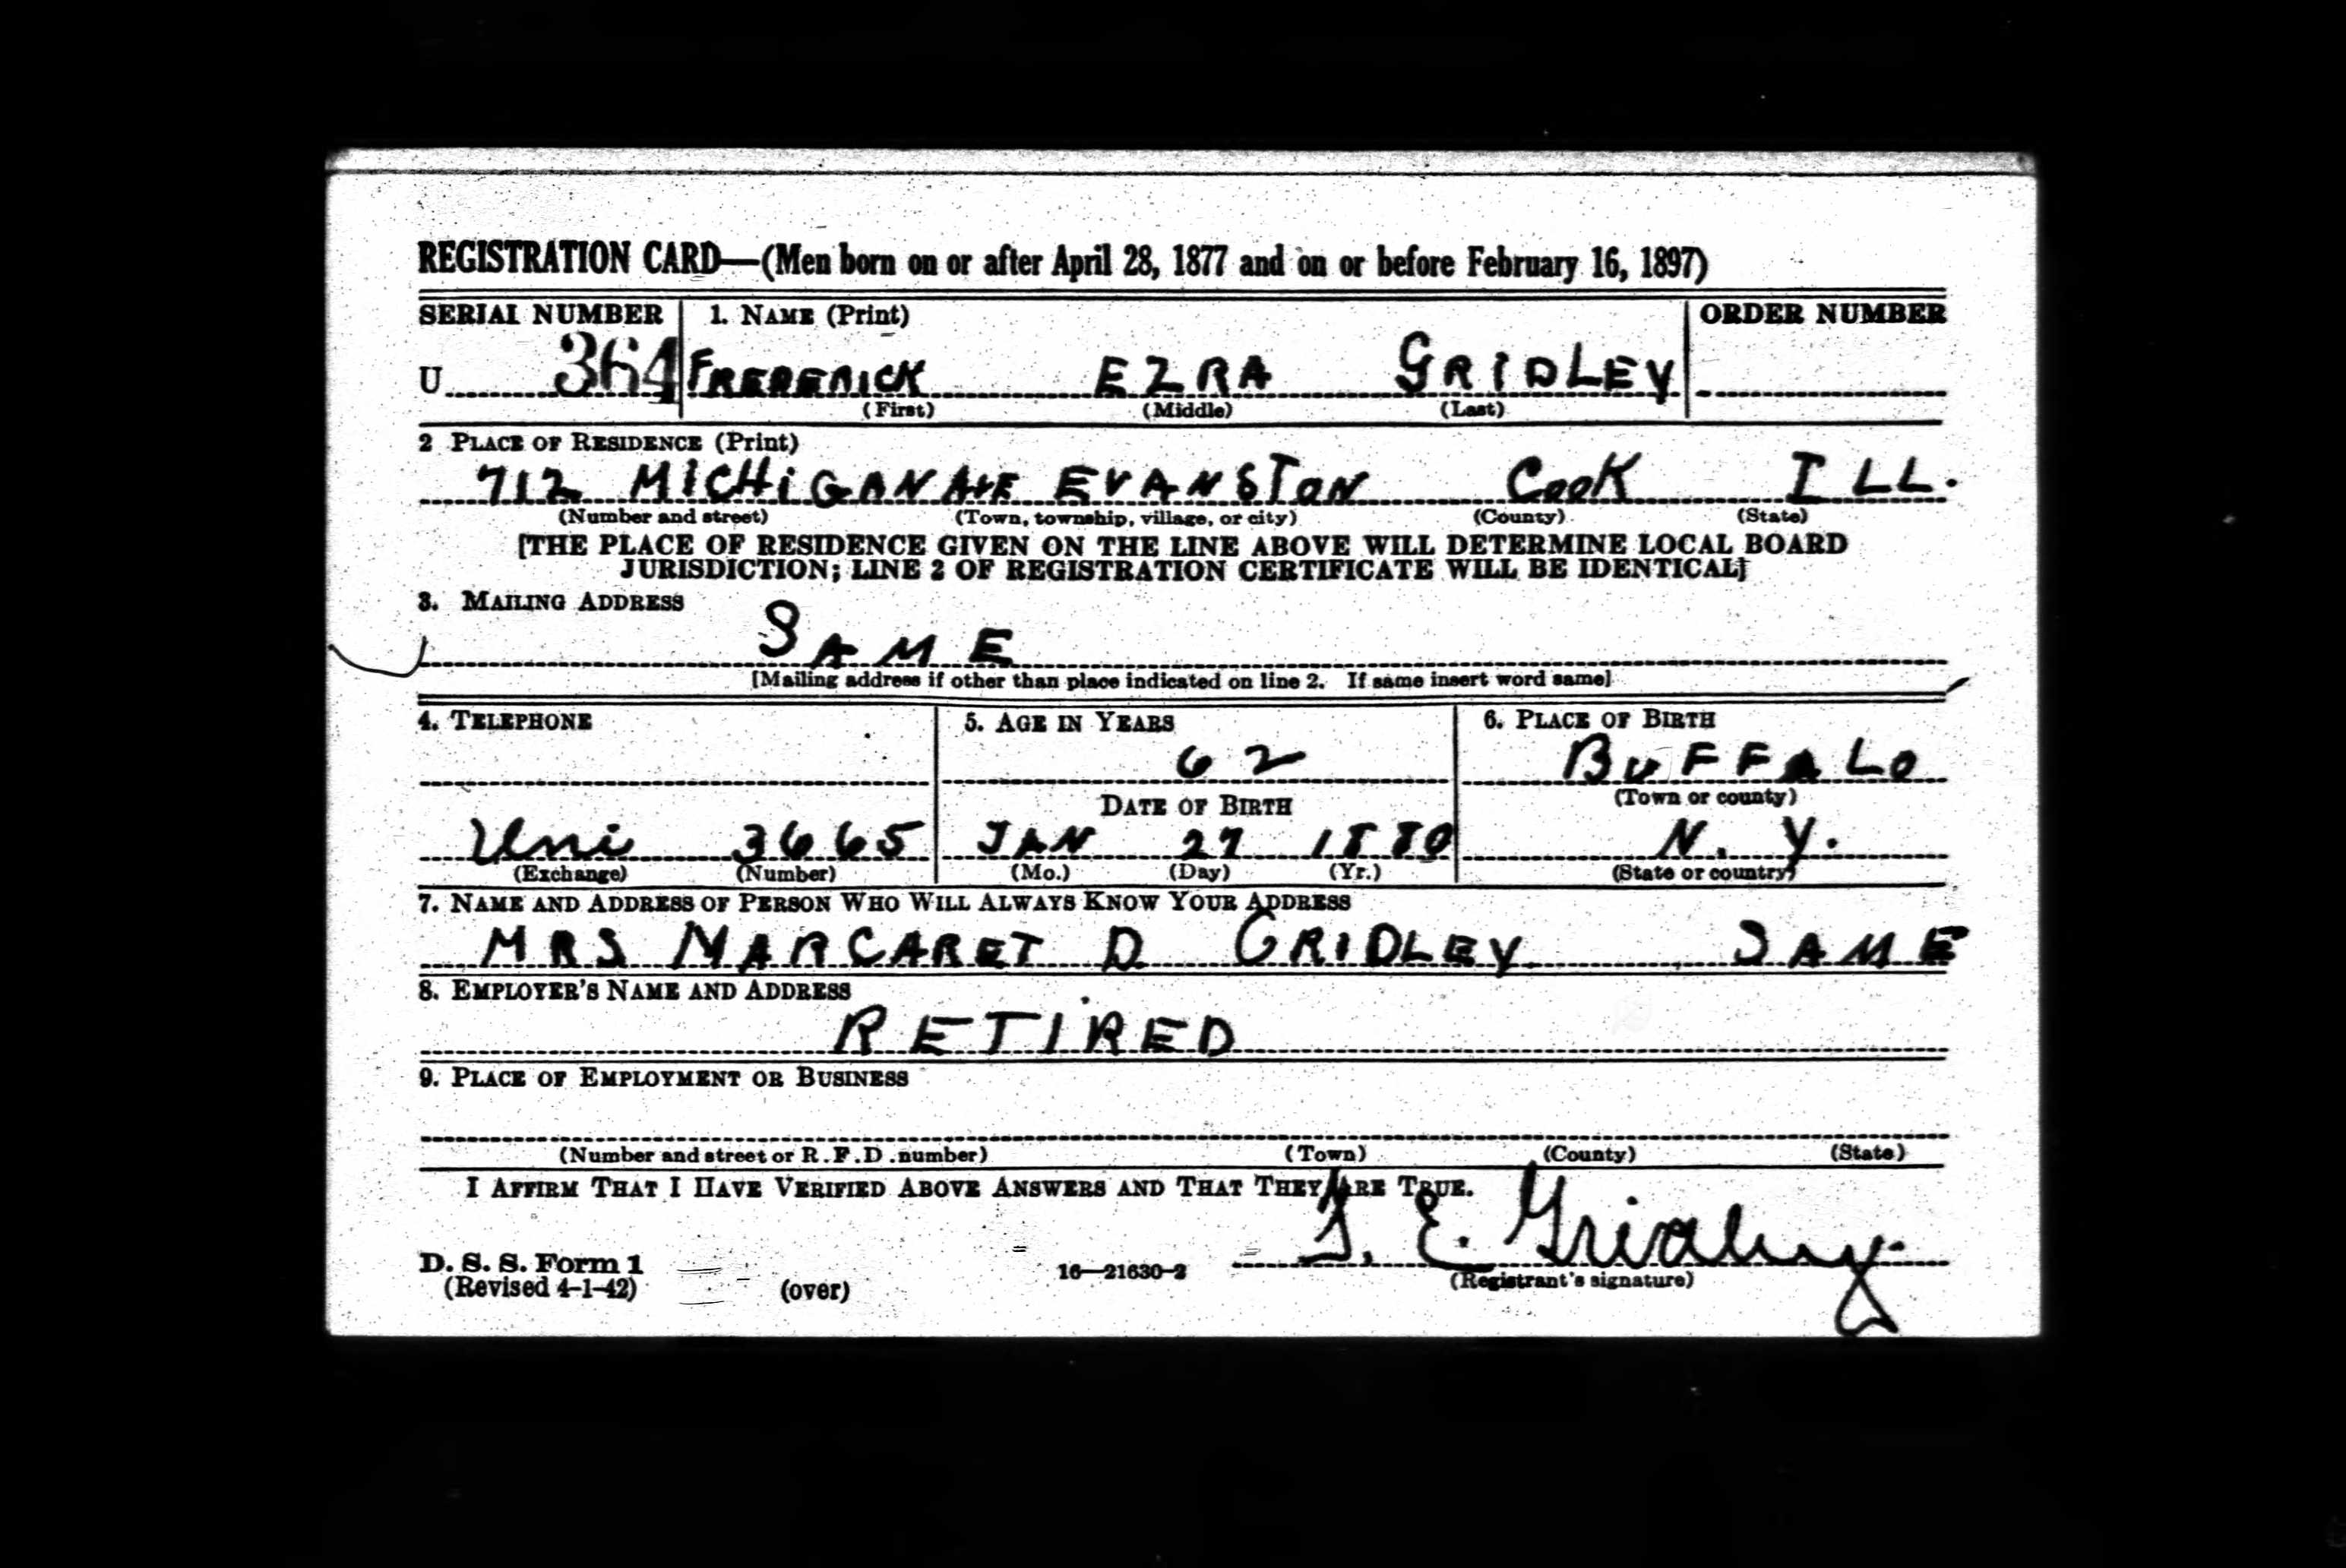 REGISTRATION CARD—(Men born on or after April 28, 1877 and on or before February 16, 1897)
SERIAL NUMBER 1. NAME (Print) ORDER NUMBER
U 364 FREDERICK EZRA GRIDLEY
(First) (Middle) (Last)
2 PLACE OF RESIDENCE (Print)
712 MICHIGAN AVE EVANSTON COOK ILL.
(Number and street) (Town, township, village, or city) (County) (State)
[THE PLACE OF RESIDENCE GIVEN ON THE LINE ABOVE WILL DETERMINE LOCAL BOARD
JURISDICTION; LINE 2 OF REGISTRATION CERTIFICATE WILL BE IDENTICAL]
3. MAILING ADDRESS
SAME
[Mailing address if other than place indicated on line 2. If same insert word same]
4. TELEPHONE 5. AGE IN YEARS 6. PLACE OF BIRTH
62 BUFFALO
DATE OF BIRTH (Town or county)
Uni 3665 JAN 27 1880 N. Y.
(Exchange) (Number) (Mo.) (Day) (Yr.) (State or country)
7. NAME AND ADDRESS OF PERSON WHO WILL ALWAYS KNOW YOUR ADDRESS
MRS MARGARET D GRIDLEY SAME
8. EMPLOYER'S NAME AND ADDRESS
RETIRED
9. PLACE OF EMPLOYMENT OR BUSINESS
(Number and street or R.F.D. number) (Town) (County) (State)
I AFFIRM THAT I HAVE VERIFIED ABOVE ANSWERS AND THAT THEY ARE TRUE.
F. E. Gridley
D. S. S. Form 1
(Revised 4-1-42) (over) 16—21630-2 (Registrant's signature)